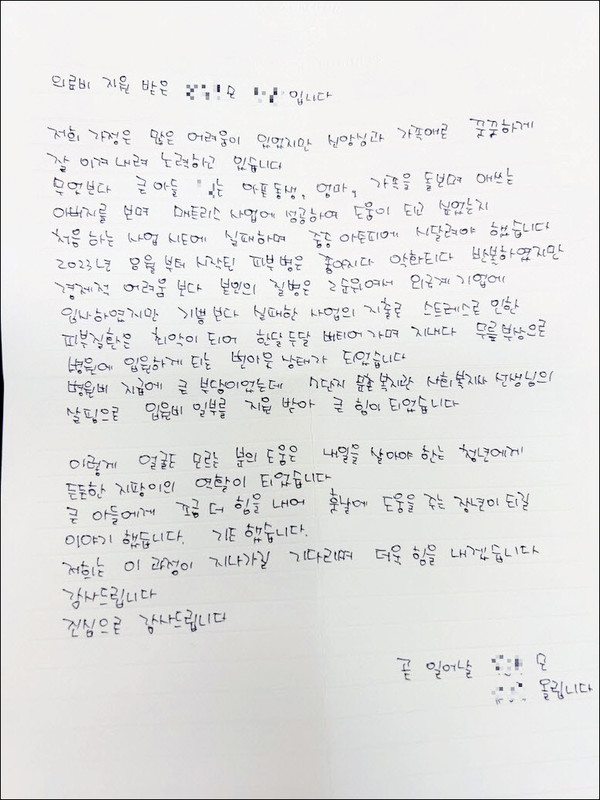 의료비 지원 받은 모 입니다
저희 가정은 많은 어려움이 있었지만 신앙심과 가족애로 꿋꿋하게
잘 이겨내려 노력하고 있습니다
무엇보다 큰 아들 는 아픈 동생, 엄마, 가족을 돌보며 애쓰는
아버지를 보며 매트리스 사업에 성공하여 도움이 되고 싶었는지
처음 하는 사업 시도에 실패하며 중증 아토피에 시달려야 했습니다
2023년 월부터 시작된 피부병은 좋아지다 악화되다 반복하였지만
경제적 어려움 보다 본인의 질병은 2순위여서 외국계 기업에
입사하였지만 기쁨보다 실패한 사업의 지출로 스트레스로 인한
피부질환은 최악이 되어 한달 두달 버티어가며 지내다 무릎부상으로
병원에 입원하게 되는 번아웃 상태가 되었습니다
병원비 지급에 큰 부담이었는데 단지 복지관 사회복지사 선생님의
살핌으로 입원비 일부를 지원 받아 큰 힘이 되었습니다
이렇게 얼굴도 모르는 분의 도움은 내일을 살아야 하는 청년에게
든든한 지팡이의 역할이 되었습니다
큰 아들에게 조금 더 힘을 내어 훗날에 도움을 주는 장년이 되길
이야기 했습니다. 기도 했습니다.
저희는 이 과정이 지나가길 기다리며 더욱 힘을 내겠습니다
감사드립니다
진심으로 감사드립니다
곧 일어날 모
올립니다